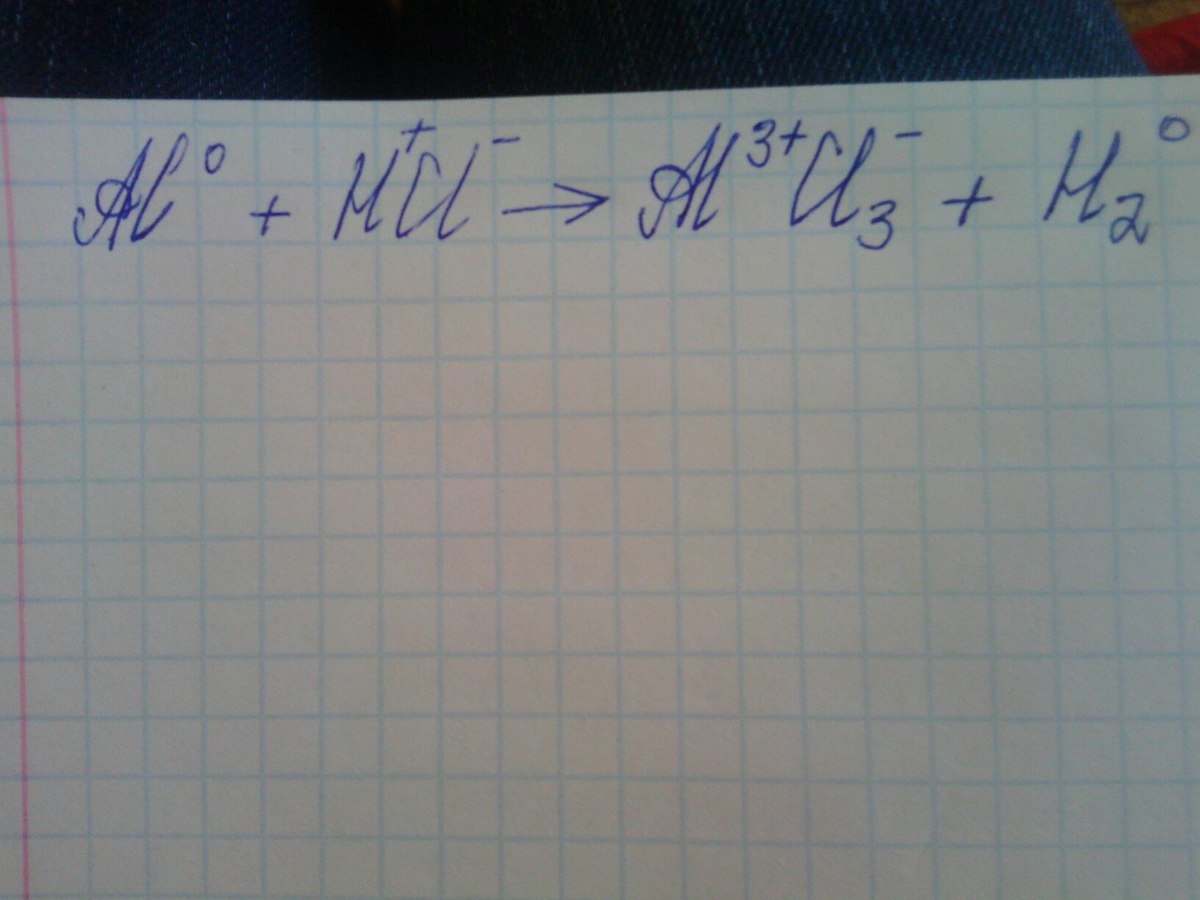 Al⁰ + H⁺Cl⁻ → Al³⁺Cl₃⁻ + H₂⁰